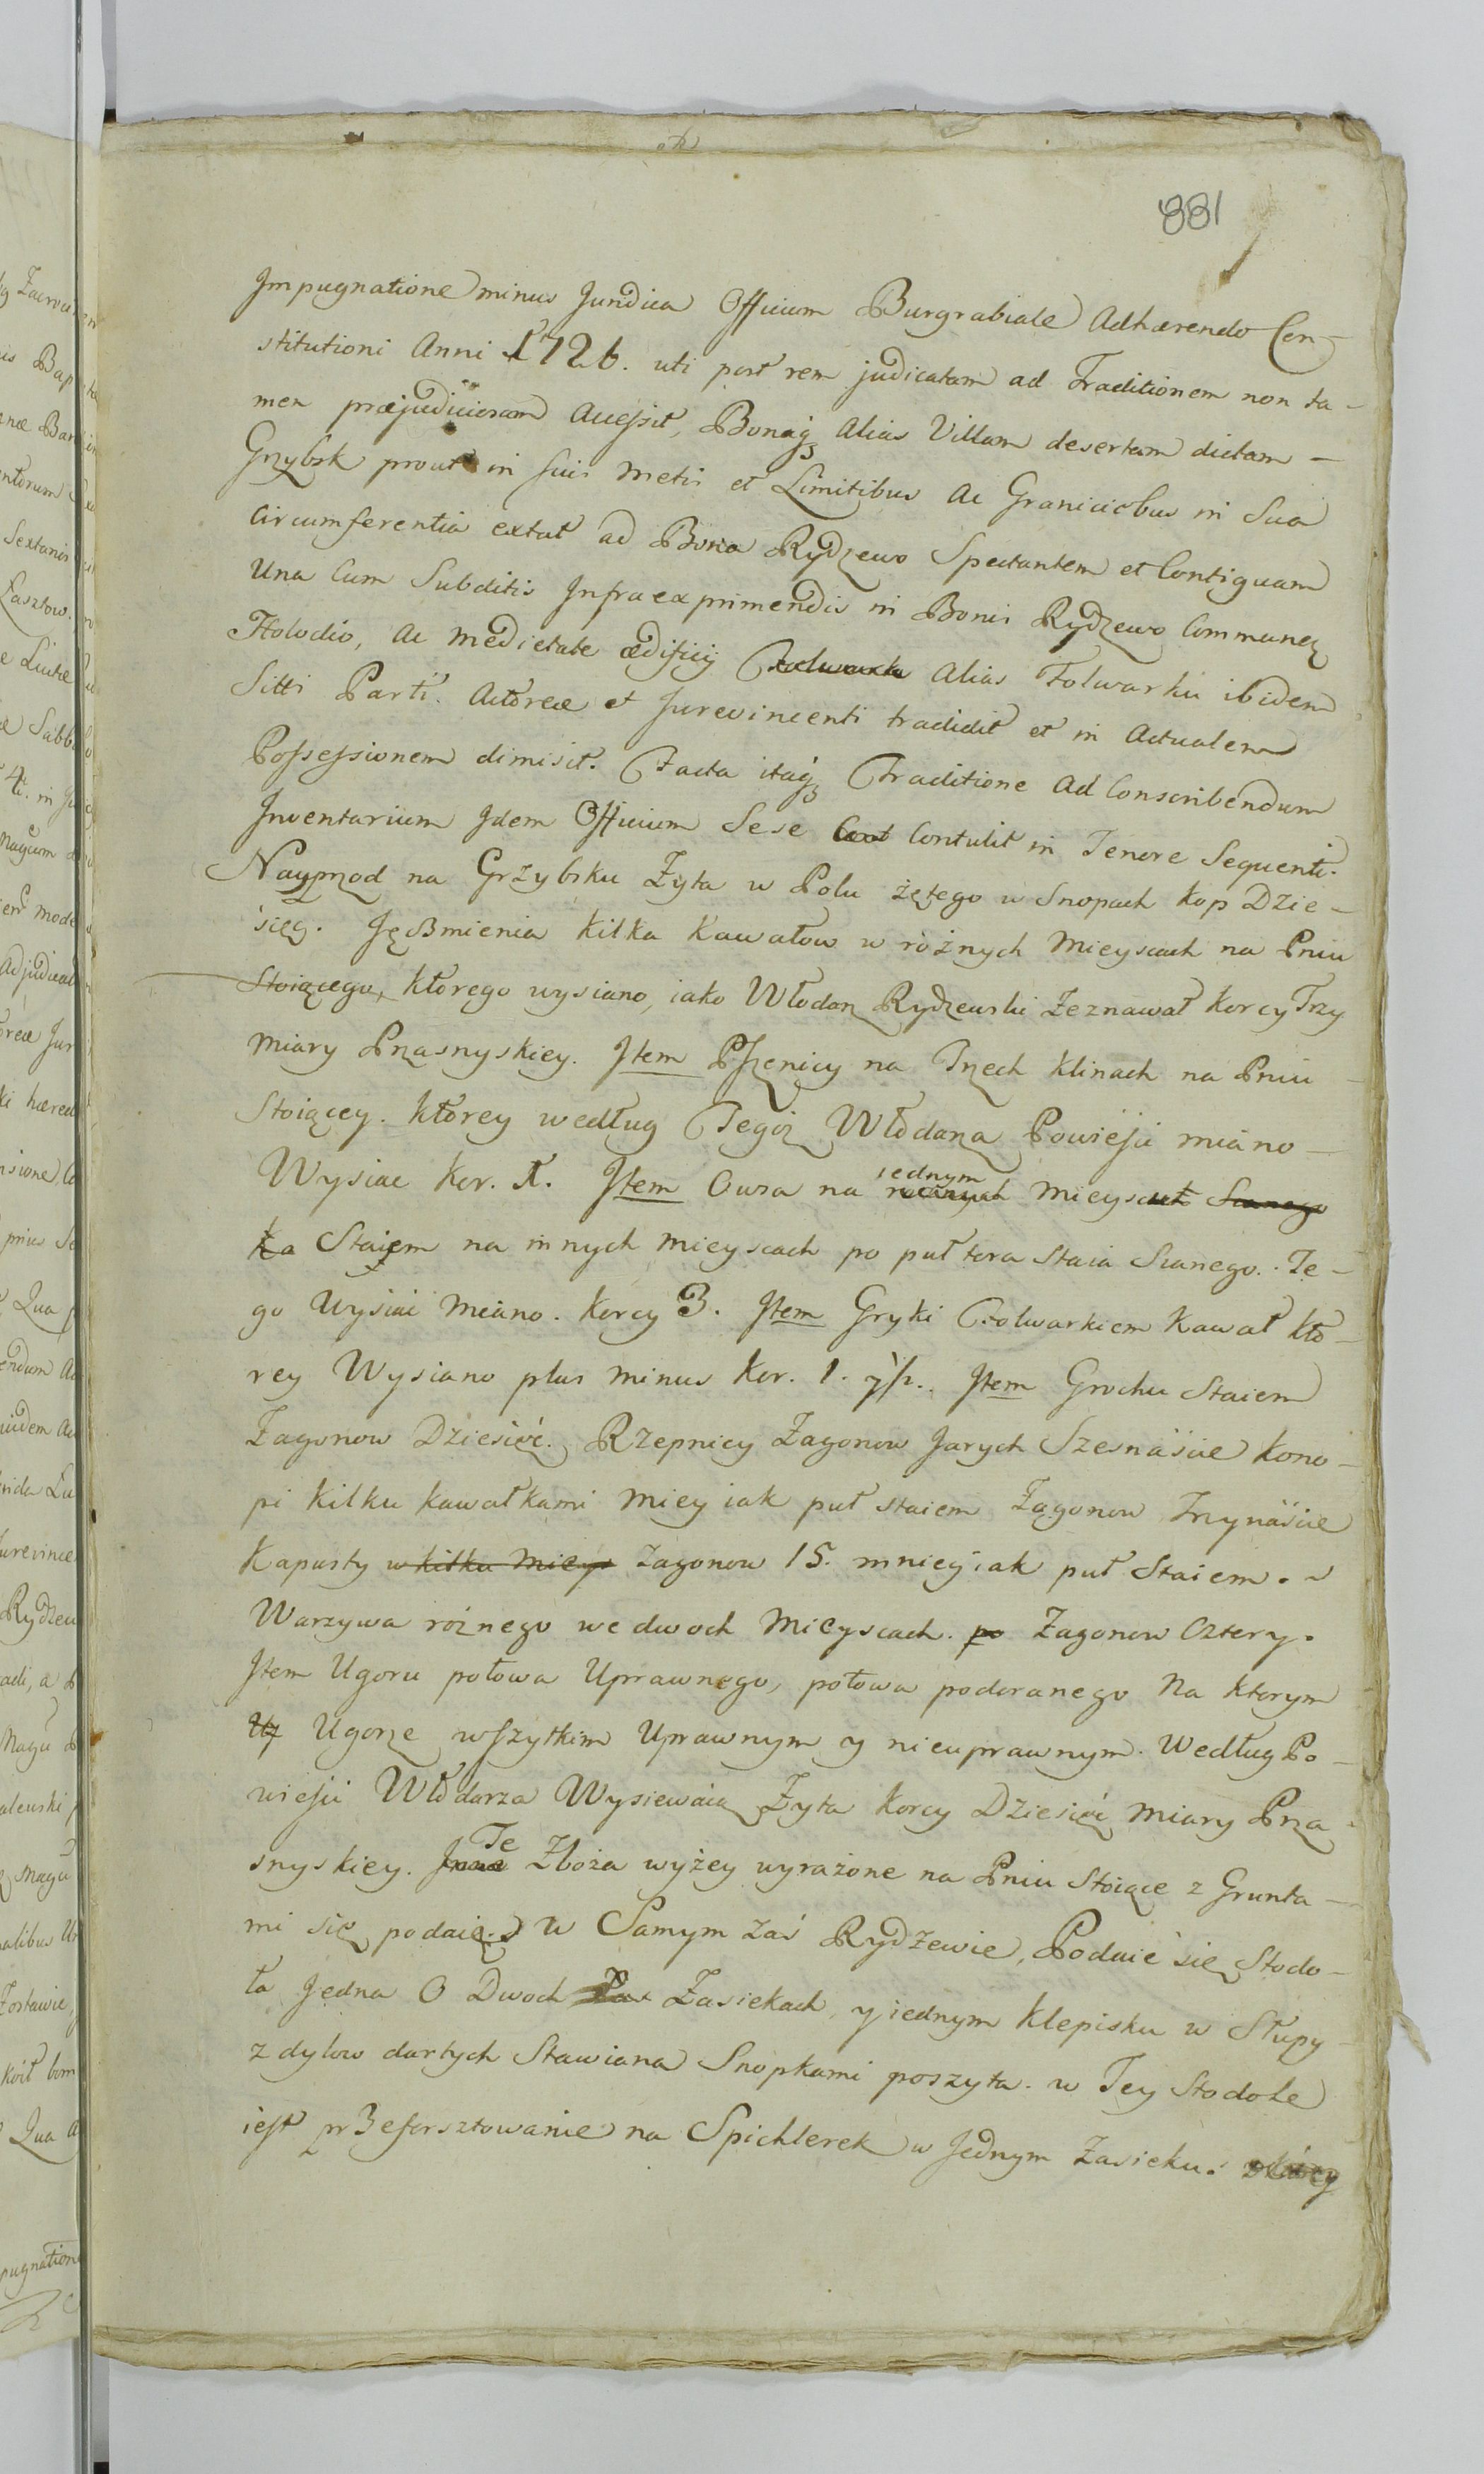 881
Impugnatione minus Juridica Officium Burgrabiale Adhærendo Con-
stitutioni Anni 1726. uti post rem judicatam ad Traditionem non ta-
men præjudiciosam Accessit, Bonaq; Alias Villam desertam dictam -
Grzybsk prout in suis Metis et Limitibus Ac Graniciebus in Sua
Circumferentia extat ad Bona Rydzewo Spectantem et Contiguam
Una Cum Subditis Infraexprimendis in Bonis Rydzewo Commune
Ac Medietate ædificij Folwarku Alias Folwarku ibidem
Sitti Parti Actoreæ et Jurevincenti tradidit et in Actualem
Possessionem dimisit. Facta itaq; Traditione Ad Conscribendum
Inventarium Idem Officium Sese Cont Contulit in Tenore Sequenti.
Nayprzod na Grzybsku Żyta w Polu żętego w Snopach kop Dzie-
sięć. Jęßmienia kilka Kawałow w rożnych Mieyscach na Pniu
Stoiącego, ktorego wysiano, iako Włodarz Rydzewski Zeznawał korcy Trzy
Miary Przasnyskiey. Item Pszenicy na Trzech klinach na Pniu
Stoiącey. ktorey według Tegoż Włodarza Powieści miano -
Wysiac kor. 1. Item Owsa na jednym rożnych Mieyscach Sianego
Staiem na innych mieyscach po puł tora Staia Sianego. Te-
go Wysiac Miano. korcy 3. Item Gryki Folwarkiem Kawał kto-
rey Wysiano plus minus kor. 1. y ½. Item Grochu Staiem
Zagonow Dziesięć. Rzepnicy Zagonow Jarych Szesnaście kono-
pi kilku kawałkami Mniey iak puł staiem Zagonow Trzynaście
Kapusty w kilku Mieys Zagonow 15. mniey iak puł Staiem.
Warzywa rożnego we dwoch Mieyscach. po Zagonow Cztery.
Item Ugoru połowa Uprawnego, połowa podoranego Na ktorym
Ug Ugorze wszytkim Uprawnym y nieuprawnym. Według Po-
wieści Włodarza Wysiewaią Żyta korcy Dziesięć Miary Prza-
snyskiey. Te Zboża wyżey wyrażone na Pniu Stoiące z Grunta-
mi się podaią. W Samym zaś Rydzewie, Podaie się Stodo-
ła Jedna O Dwoch Zasiekach, y iednym klepisku w Słupy
z dylow dartych Stawiana Snopkami poszyta. w Tey Stodole
iest przeforsztowanie na Spichlerek w Jednym Zasieku.